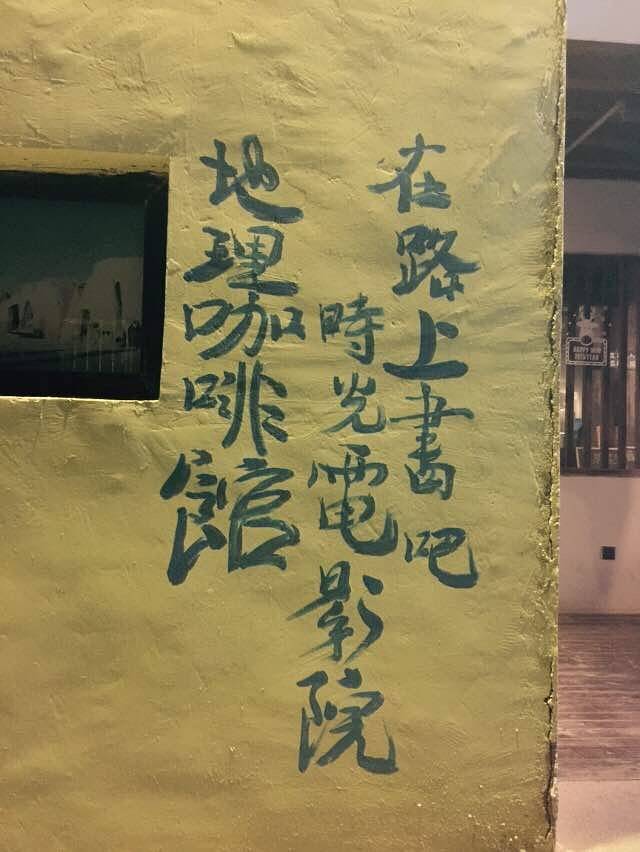 在路上書吧
時光電影院
地理咖啡館
HAPPY NEW